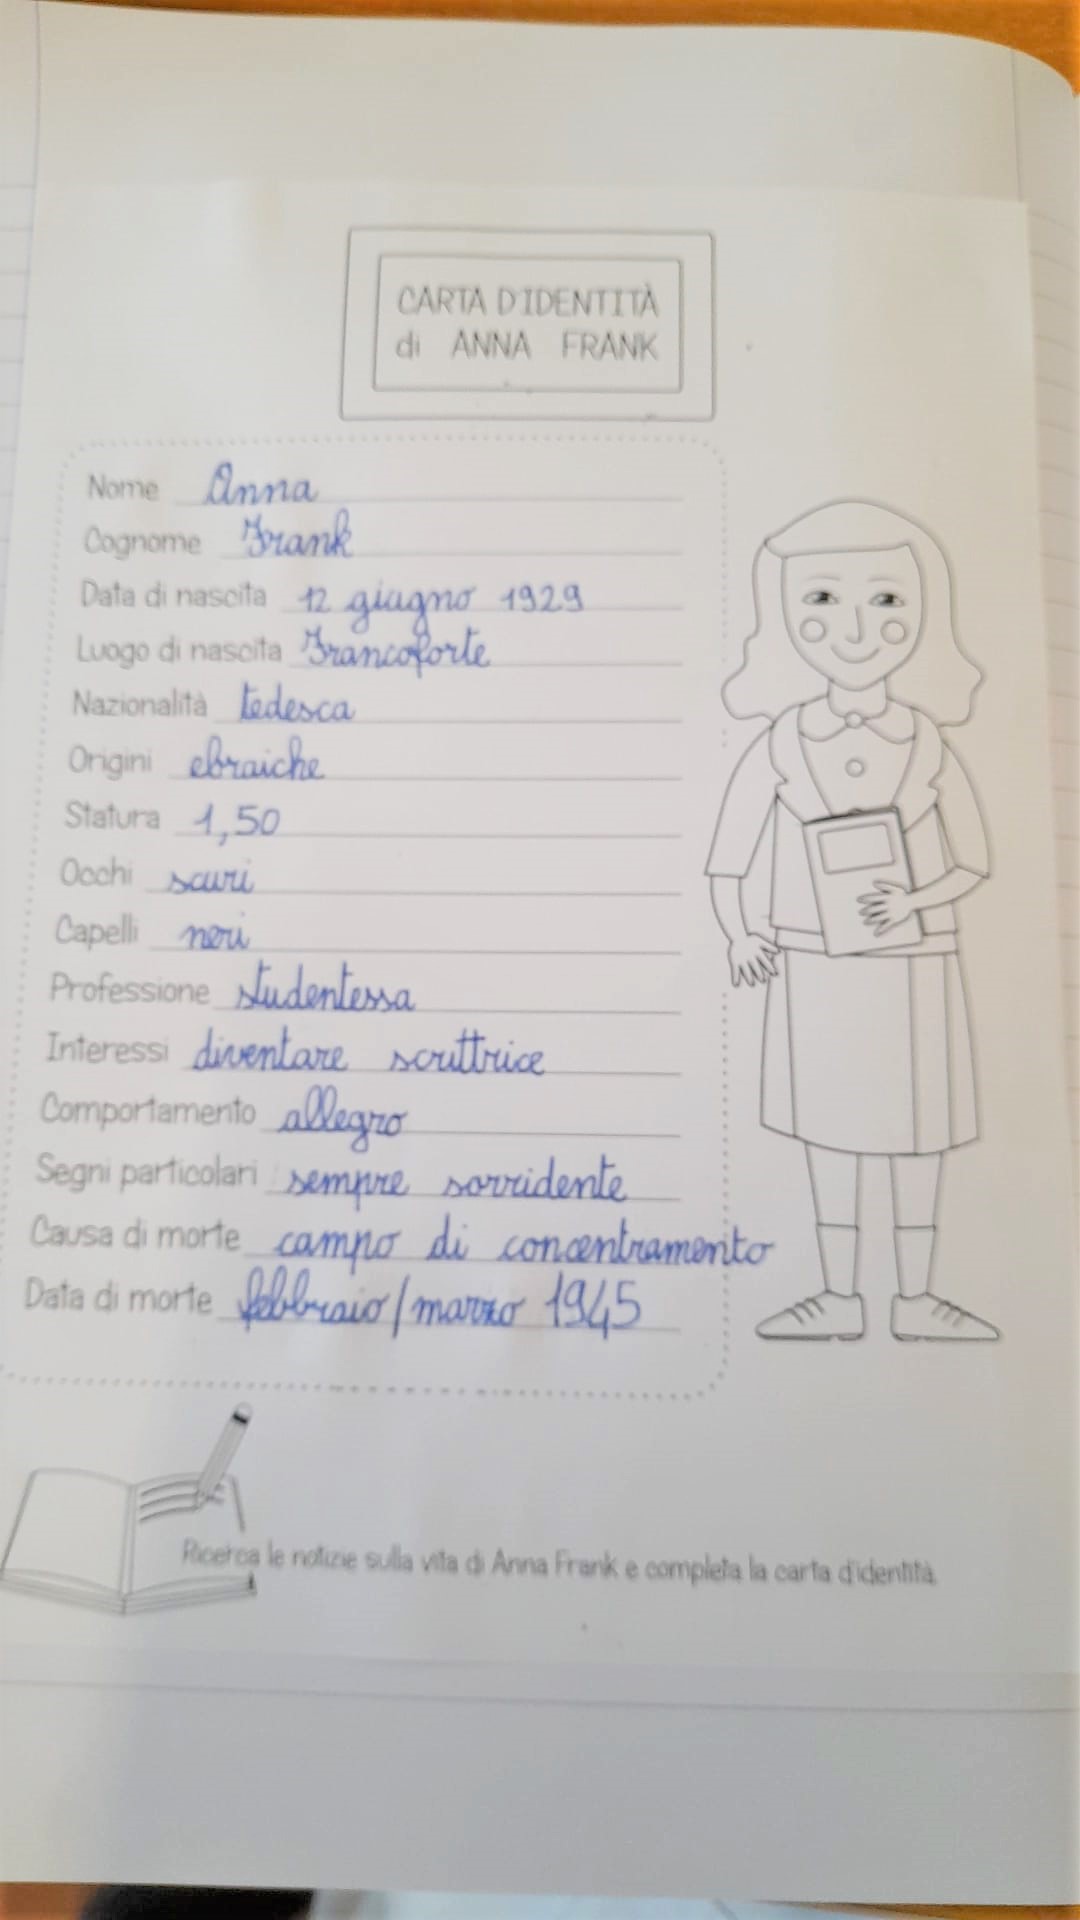 CARTA D'IDENTITÀ
di ANNA FRANK
Nome Anna
Cognome Frank
Data di nascita 12 giugno 1929
Luogo di nascita Francoforte
Nazionalità tedesca
Origini ebraiche
Statura 1,50
Occhi scuri
Capelli neri
Professione studentessa
Interessi diventare scrittrice
Comportamento allegro
Segni particolari sempre sorridente
Causa di morte campo di concentramento
Data di morte febbraio/marzo 1945
Ricerca le notizie sulla vita di Anna Frank e completa la carta d'identità.